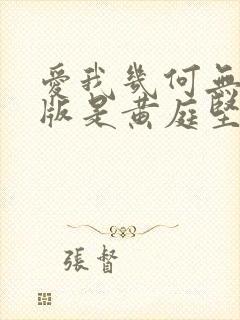 愛我幾何無
版是黄庭堅
張督